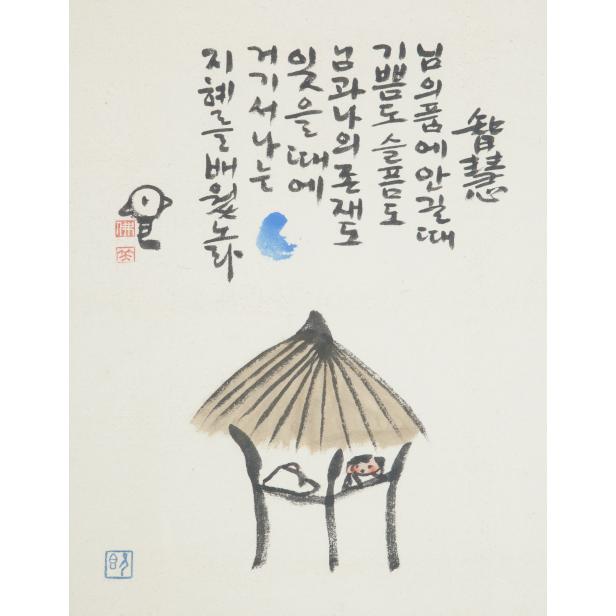 智慧
님의 품에 안길 때
기쁨도 슬픔도
님과 나의 존재도
잊을 때에
거기서 나는
지혜를 배웠노라